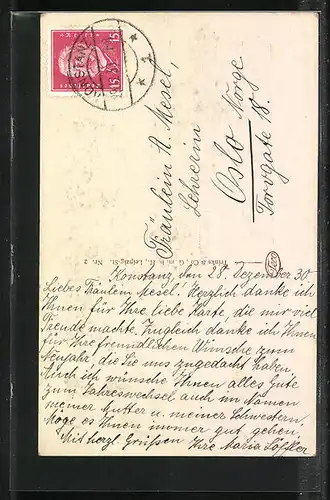 15 15
KONSTANZ
Fräulein A. Mesel,
Lehrerin
Oslo Norge
Torvgate 18.
Trinks & Co., G. m. b. H. Leipzig-St. Nr. 2
Konstanz, den 28. Dezember 30
Liebes Fräulein Mesel. Herzlich danke ich
Ihnen für Ihre liebe Karte, die mir viel
Freude machte. Zugleich danke ich Ihnen
für Ihre freundlichen Wünsche zum
Neujahr, die Sie uns zugedacht haben.
Auch ich wünsche Ihnen alles Gute
zum Jahreswechsel auch im Namen
meiner Mutter u. meiner Schwestern.
Möge es Ihnen immer gut gehen.
Mit herzl. Grüßen Ihre Maria Löffler